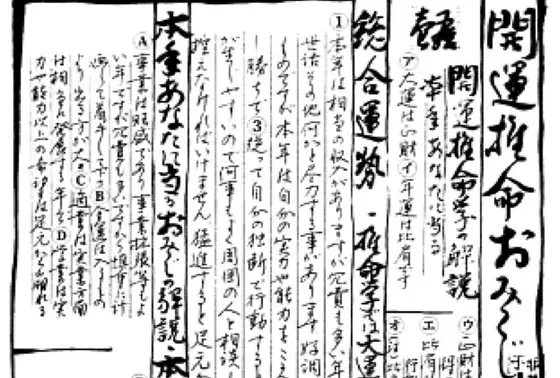 開運推命おみくじ
開運推命学の解説
本年あなたに当る
㋐大運は正財㋑年運は比肩です
㋒正財は
㋓比肩
㋔
総合運勢・推命学では大運
①本年は相当の収入がありますが冗費も多い年
世話その他何かと尽力する事があります 好調
ものですが本年は自分の実力や能力を
し勝ちで③従って自分の独断で行動する
が生しやすいので何事もよく周囲の人と相談し
控えなければいけません 猛進すると足元
本年あなたに当るおみくじの解説・本
Ⓐ事業は旺盛であり事業拡張等もよ
い年ですが冗費も多いですから慎重に計
画して着手し下さいⒷ金運は入るもの
より出る方が大Ⓒ商業は営業方面
は相当発展する年ですⒹ学業は実
力や能力以上の希望は足元から崩れる